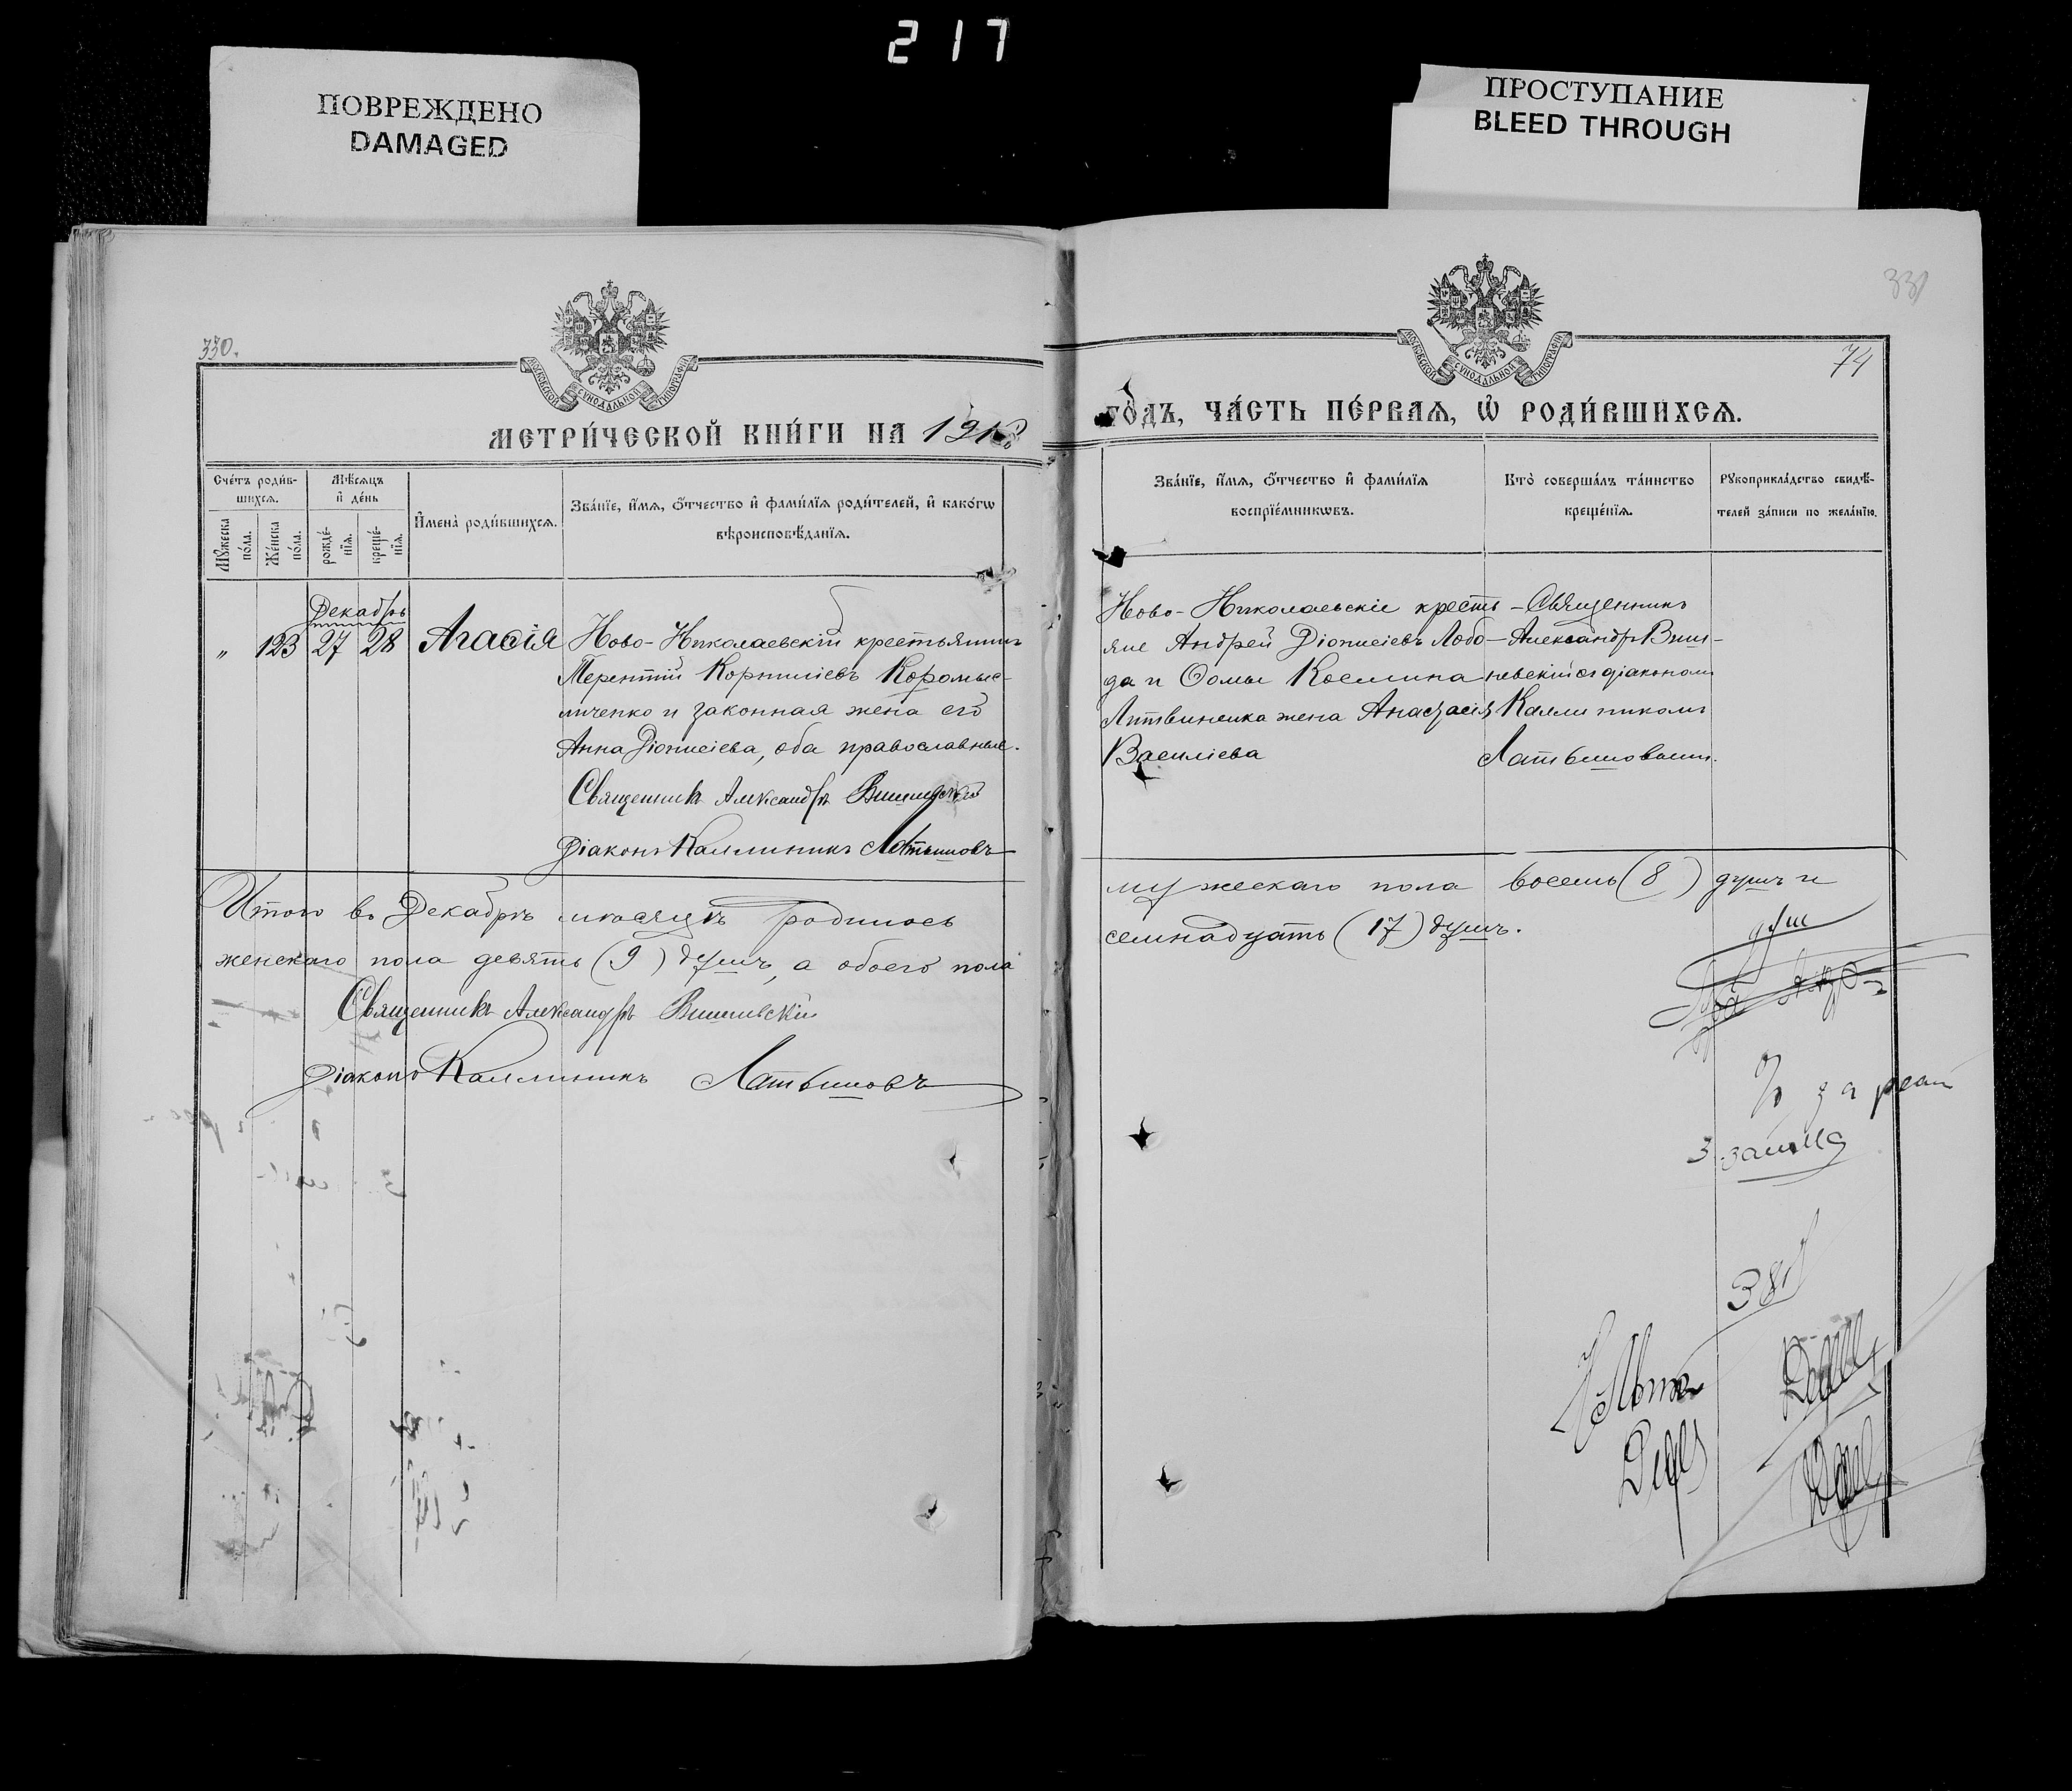 217
ПОВРЕЖДЕНО
DAMAGED
ПРОСТУПАНИЕ
BLEED THROUGH
330.
331
74
МОСКОВСКОЙ СѴНОДАЛЬНОЙ ТИПОГРАФІИ
МОСКОВСКОЙ СѴНОДАЛЬНОЙ ТИПОГРАФІИ
МЕТРИ́ЧЕСКОЙ КНИ́ГИ НА 191
ГО́ДЪ, ЧА́СТЬ ПЕ́РВАѦ, Ѡ҆ РОДИ́ВШИХСѦ.
Сче́тъ роди́в-
шихсѧ.
Мꙋжеска
по́ла.
Же́нска
по́ла.
Мѣ́сѧцъ
и҆ де́нь
рожде́-
нїѧ.
креще́-
нїѧ.
И҆мена̀ роди́вшихсѧ.
Зва́нїе, и҆́мѧ, ѻ҆́тчество и҆ фами́лїѧ роди́телей, и҆ како́гѡ
вѣроисповѣ́данїѧ.
Зва́нїе, и҆́мѧ, ѻ҆́тчество и҆ фами́лїѧ
воспрїе́мникѡвъ.
Кто̀ соверша́лъ та́инство
креще́нїѧ.
Рꙋкоприкла́дство свидѣ́-
телей за́писи по жела́нїю.
Декабрь
„ 123 27 28 Агасія
Ново-Николаевскій крестьянинъ
Терентій Корниліевъ Коромыс-
личенко и законная жена его
Анна Діонисіева, оба православные.
Священникъ Александръ Вишневскій
Діаконъ Каллиникъ Латышовъ
Ново-Николаевскіе кресть-
яне Андрей Діонисіевъ Лобо-
да и Ѳомы Космина
Литвиненка жена Анастасія
Василіева
Священникъ
Александръ Виш-
невскій съ діакономъ
Каллиникомъ
Латышовымъ.
Итого въ Декабрѣ мѣсяцѣ родилось
мужескаго пола восемь (8) душъ и
женскаго пола девять (9) душъ, а обоего пола
семнадцать (17) душъ.
Священникъ Александръ Вишневскій
Діаконъ Каллиникъ Латышовъ